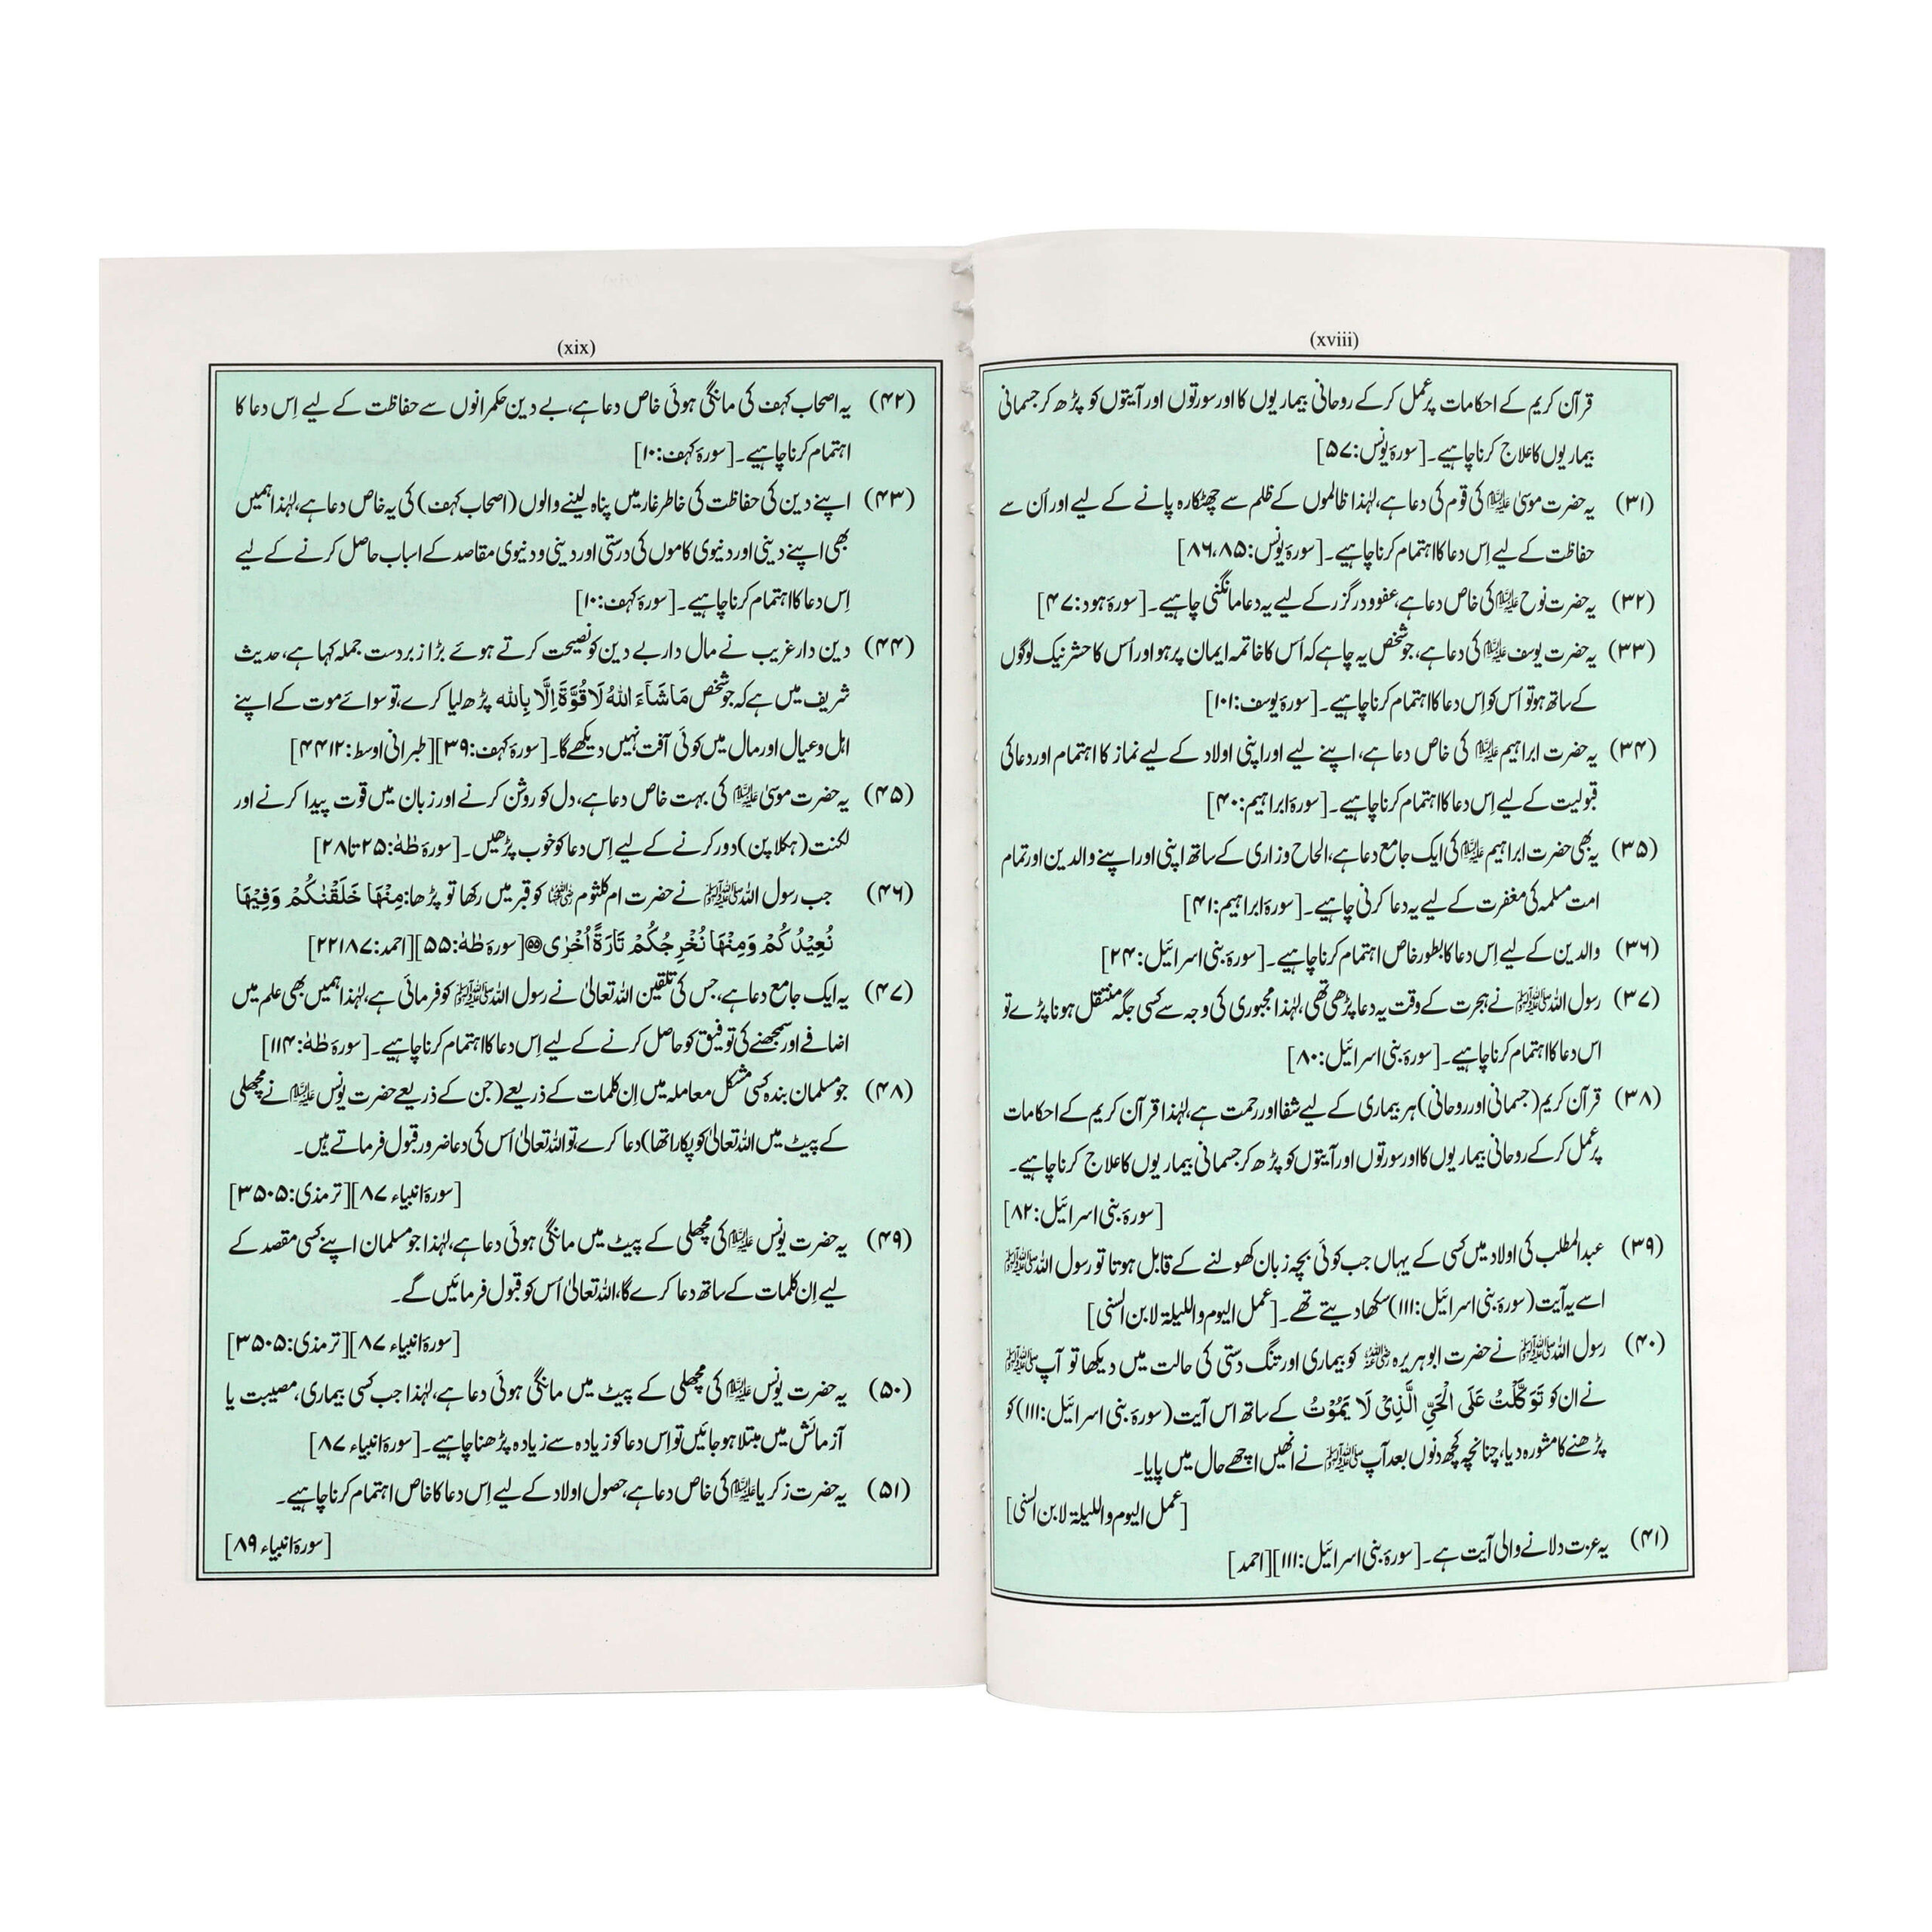 (xviii)
قرآن کریم کے احکامات پر عمل کر کے روحانی بیماریوں کا اور سورتوں اور آیتوں کو پڑھ کر جسمانی
بیماریوں کا علاج کرنا چاہیے۔ [سورۂ یونس: ۵۷]
(۳۱) یہ حضرت موسیٰ علیہ السلام کی قوم کی دعا ہے، لہٰذا ظالموں کے ظلم سے چھٹکارہ پانے کے لیے اور اُن سے
حفاظت کے لیے اِس دعا کا اہتمام کرنا چاہیے۔ [سورۂ یونس: ۸۵،۸۶]
(۳۲) یہ حضرت نوح علیہ السلام کی خاص دعا ہے، عفو و درگزر کے لیے یہ دعا مانگنی چاہیے۔ [سورۂ ہود: ۴۷]
(۳۳) یہ حضرت یوسف علیہ السلام کی دعا ہے، جو شخص یہ چاہے کہ اُس کا خاتمہ ایمان پر ہو اور اُس کا حشر نیک لوگوں
کے ساتھ ہو تو اُس کو اِس دعا کا اہتمام کرنا چاہیے۔ [سورۂ یوسف: ۱۰۱]
(۳۴) یہ حضرت ابراہیم علیہ السلام کی خاص دعا ہے، اپنے لیے اور اپنی اولاد کے لیے نماز کا اہتمام اور دعا کی
قبولیت کے لیے اِس دعا کا اہتمام کرنا چاہیے۔ [سورۂ ابراہیم: ۴۰]
(۳۵) یہ بھی حضرت ابراہیم علیہ السلام کی ایک جامع دعا ہے، الحاح و زاری کے ساتھ اپنی اور اپنے والدین اور تمام
امت مسلمہ کی مغفرت کے لیے یہ دعا کرنی چاہیے۔ [سورۂ ابراہیم: ۴۱]
(۳۶) والدین کے لیے اِس دعا کا بطور خاص اہتمام کرنا چاہیے۔ [سورۂ بنی اسرائیل: ۲۴]
(۳۷) رسول اللہ ﷺ نے ہجرت کے وقت یہ دعا پڑھی تھی، لہٰذا مجبوری کی وجہ سے کسی جگہ منتقل ہونا پڑے تو
اس دعا کا اہتمام کرنا چاہیے۔ [سورۂ بنی اسرائیل: ۸۰]
(۳۸) قرآن کریم (جسمانی اور روحانی) ہر بیماری کے لیے شفا اور رحمت ہے، لہٰذا قرآن کریم کے احکامات
پر عمل کر کے روحانی بیماریوں کا اور سورتوں اور آیتوں کو پڑھ کر جسمانی بیماریوں کا علاج کرنا چاہیے۔
[سورۂ بنی اسرائیل: ۸۲]
(۳۹) عبدالمطلب کی اولاد میں کسی کے یہاں جب کوئی بچہ زبان کھولنے کے قابل ہوتا تو رسول اللہ ﷺ
اسے یہ آیت (سورۂ بنی اسرائیل: ۱۱۱) سکھا دیتے تھے۔ [عمل الیوم واللیلۃ لابن السنی]
(۴۰) رسول اللہ ﷺ نے حضرت ابو ہریرہ رضی اللہ عنہ کو بیماری اور تنگ دستی کی حالت میں دیکھا تو آپ ﷺ
نے ان کو تَوَكَّلْتُ عَلَى الْحَيِّ الَّذِىْ لَا يَمُوْتُ کے ساتھ اس آیت (سورۂ بنی اسرائیل: ۱۱۱) کو
پڑھنے کا مشورہ دیا، چنانچہ کچھ دنوں بعد آپ ﷺ نے انھیں اچھے حال میں پایا۔
[عمل الیوم واللیلۃ لابن السنی]
(۴۱) یہ عزت دلانے والی آیت ہے۔ [سورۂ بنی اسرائیل: ۱۱۱] [احمد]
(xix)
(۴۲) یہ اصحاب کہف کی مانگی ہوئی خاص دعا ہے، بے دین حکمرانوں سے حفاظت کے لیے اِس دعا کا
اہتمام کرنا چاہیے۔ [سورۂ کہف: ۱۰]
(۴۳) اپنے دین کی حفاظت کی خاطر غار میں پناہ لینے والوں (اصحاب کہف) کی یہ خاص دعا ہے، لہٰذا ہمیں
بھی اپنے دینی اور دنیوی کاموں کی درستی اور دینی و دنیوی مقاصد کے اسباب حاصل کرنے کے لیے
اِس دعا کا اہتمام کرنا چاہیے۔ [سورۂ کہف: ۱۰]
(۴۴) دین دار غریب نے مال دار بے دین کو نصیحت کرتے ہوئے بڑا زبردست جملہ کہا ہے، حدیث
شریف میں ہے کہ جو شخص مَاشَآءَ اللهُ لَا قُوَّةَ اِلَّا بِالله پڑھ لیا کرے، تو سوائے موت کے اپنے
اہل و عیال اور مال میں کوئی آفت نہیں دیکھے گا۔ [سورۂ کہف: ۳۹] [طبرانی اوسط: ۴۴۱۲]
(۴۵) یہ حضرت موسیٰ علیہ السلام کی بہت خاص دعا ہے، دل کو روشن کرنے اور زبان میں قوت پیدا کرنے اور
لکنت (ہکلا پن) دور کرنے کے لیے اِس دعا کو خوب پڑھیں۔ [سورۂ طٰہٰ: ۲۵ تا ۲۸]
(۴۶) جب رسول اللہ ﷺ نے حضرت ام کلثوم رضی اللہ عنہا کو قبر میں رکھا تو پڑھا: مِنْهَا خَلَقْنٰكُمْ وَفِيْهَا
نُعِيْدُكُمْ وَمِنْهَا نُخْرِجُكُمْ تَارَةً اُخْرٰى ﴿۵۵﴾ [سورۂ طٰہٰ: ۵۵] [احمد: ۲۲۱۸۷]
(۴۷) یہ ایک جامع دعا ہے، جس کی تلقین اللہ تعالیٰ نے رسول اللہ ﷺ کو فرمائی ہے، لہٰذا ہمیں بھی علم میں
اضافے اور سمجھنے کی توفیق کو حاصل کرنے کے لیے اِس دعا کا اہتمام کرنا چاہیے۔ [سورۂ طٰہٰ: ۱۱۴]
(۴۸) جو مسلمان بندہ کسی مشکل معاملہ میں اِن کلمات کے ذریعے (جن کے ذریعے حضرت یونس علیہ السلام نے مچھلی
کے پیٹ میں اللہ تعالیٰ کو پکارا تھا) دعا کرے، تو اللہ تعالیٰ اُس کی دعا ضرور قبول فرماتے ہیں۔
[سورۂ انبیاء ۸۷] [ترمذی: ۳۵۰۵]
(۴۹) یہ حضرت یونس علیہ السلام کی مچھلی کے پیٹ میں مانگی ہوئی دعا ہے، لہٰذا جو مسلمان اپنے کسی مقصد کے
لیے اِن کلمات کے ساتھ دعا کرے گا، اللہ تعالیٰ اُس کو قبول فرمائیں گے۔
[سورۂ انبیاء ۸۷] [ترمذی: ۳۵۰۵]
(۵۰) یہ حضرت یونس علیہ السلام کی مچھلی کے پیٹ میں مانگی ہوئی دعا ہے، لہٰذا جب کسی بیماری، مصیبت یا
آزمائش میں مبتلا ہو جائیں تو اِس دعا کو زیادہ سے زیادہ پڑھنا چاہیے۔ [سورۂ انبیاء ۸۷]
(۵۱) یہ حضرت زکریا علیہ السلام کی خاص دعا ہے، حصول اولاد کے لیے اِس دعا کا خاص اہتمام کرنا چاہیے۔
[سورۂ انبیاء ۸۹]